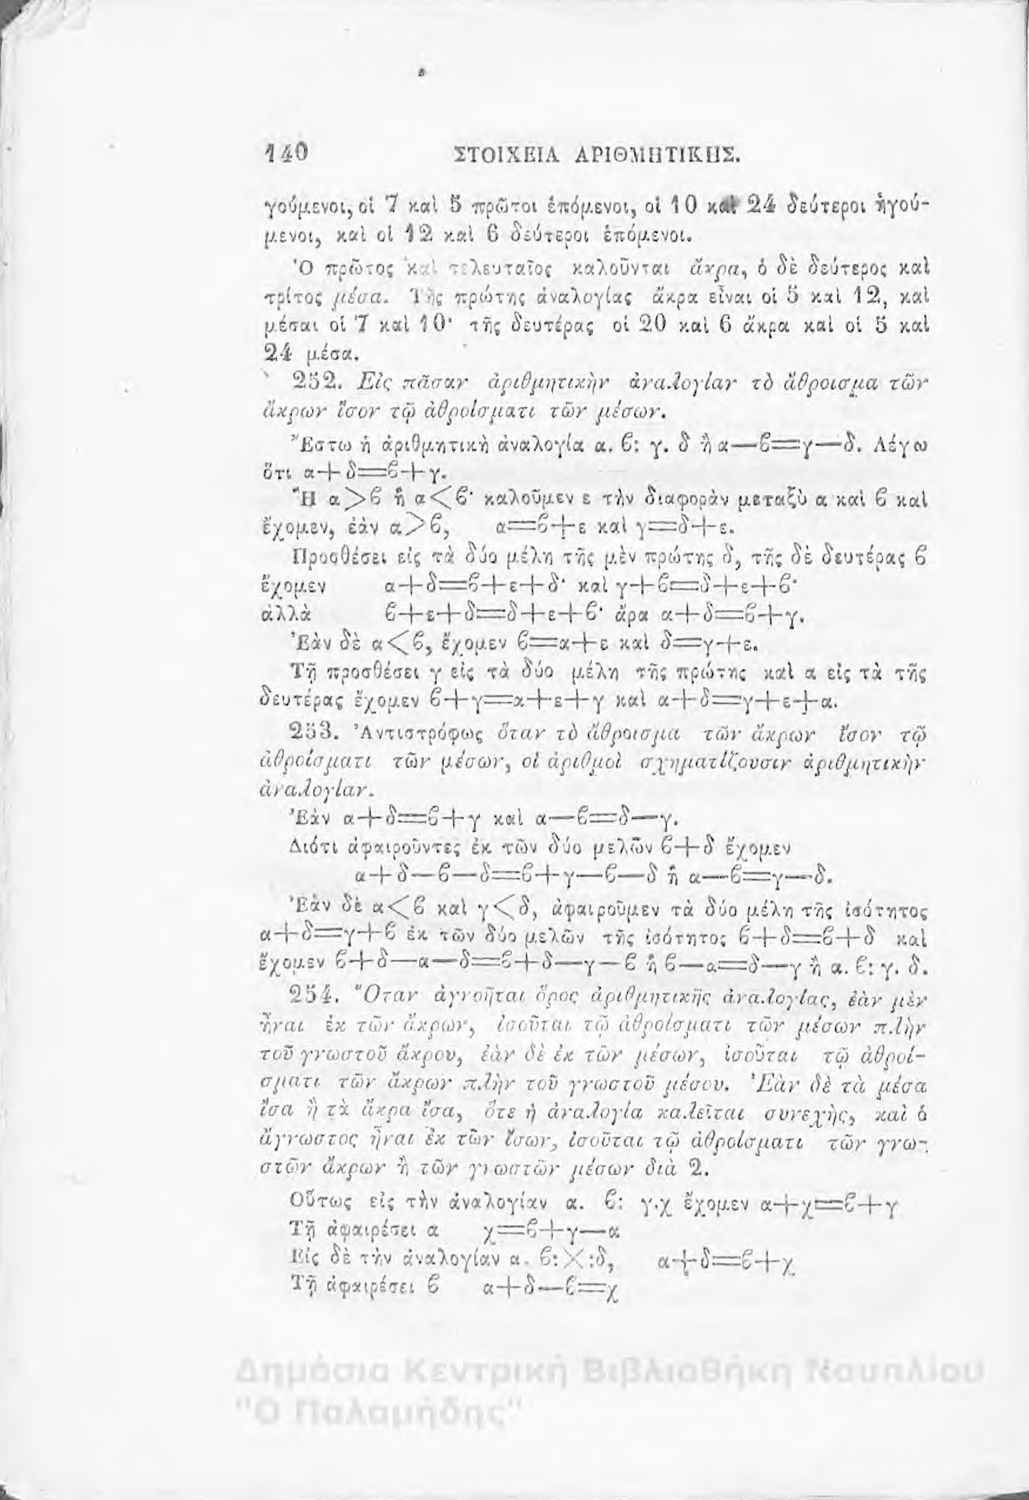 140 ΣΤΟΙΧΕΙΑ ΑΡΙΘΜΗΤΙΚΗΣ.
γούμενοι, οἱ 7 καὶ 5 πρῶτοι ἑπόμενοι, οἱ 10 καὶ 24 δεύτεροι ἡγού-
μενοι, καὶ οἱ 12 καὶ 6 δεύτεροι ἑπόμενοι.
Ὁ πρῶτος καὶ τελευταῖος καλοῦνται ἄκρα, ὁ δὲ δεύτερος καὶ
τρίτος μέσα. Τῆς πρώτης ἀναλογίας ἄκρα εἶναι οἱ 5 καὶ 12, καὶ
μέσαι οἱ 7 καὶ 10· τῆς δευτέρας οἱ 20 καὶ 6 ἄκρα καὶ οἱ 5 καὶ
24 μέσα.
252. Εἰς πᾶσαν ἀριθμητικὴν ἀναλογίαν τὸ ἄθροισμα τῶν
ἄκρων ἴσον τῷ ἀθροίσματι τῶν μέσων.
Ἔστω ἡ ἀριθμητικὴ ἀναλογία α. ϐ: γ. δ ἢ α—ϐ=γ—δ. Λέγω
ὅτι α+δ=ϐ+γ.
Ἢ α>ϐ ἢ α<ϐ· καλοῦμεν ε τὴν διαφορὰν μεταξὺ α καὶ ϐ καὶ
ἔχομεν, ἐὰν α>ϐ, α=ϐ+ε καὶ γ=δ+ε.
Προσθέσει εἰς τὰ δύο μέλη τῆς μὲν πρώτης δ, τῆς δὲ δευτέρας ϐ
ἔχομεν α+δ=ϐ+ε+δ· καὶ γ+ϐ=δ+ε+ϐ·
ἀλλὰ ϐ+ε+δ=δ+ε+ϐ· ἄρα α+δ=ϐ+γ.
Ἐὰν δὲ α<ϐ, ἔχομεν ϐ=α+ε καὶ δ=γ+ε.
Τῇ προσθέσει γ εἰς τὰ δύο μέλη τῆς πρώτης καὶ α εἰς τὰ τῆς
δευτέρας ἔχομεν ϐ+γ=α+ε+γ καὶ α+δ=γ+ε+α.
253. Ἀντιστρόφως ὅταν τὸ ἄθροισμα τῶν ἄκρων ἴσον τῷ
ἀθροίσματι τῶν μέσων, οἱ ἀριθμοὶ σχηματίζουσιν ἀριθμητικὴν
ἀναλογίαν.
Ἐὰν α+δ=ϐ+γ καὶ α—ϐ=δ—γ.
Διότι ἀφαιροῦντες ἐκ τῶν δύο μελῶν ϐ+δ ἔχομεν
α+δ—ϐ—δ=ϐ+γ—ϐ—δ ἢ α—ϐ=γ—δ.
Ἐὰν δὲ α<ϐ καὶ γ<δ, ἀφαιροῦμεν τὰ δύο μέλη τῆς ἰσότητος
α+δ=γ+ϐ ἐκ τῶν δύο μελῶν τῆς ἰσότητος ϐ+δ=ϐ+δ καὶ
ἔχομεν ϐ+δ—α—δ=ϐ+δ—γ—ϐ ἢ ϐ—α=δ—γ ἢ α. ϐ: γ. δ.
254. Ὅταν ἀγνοῆται ὅρος ἀριθμητικῆς ἀναλογίας, ἐὰν μὲν
ἦναι ἐκ τῶν ἄκρων, ἰσοῦται τῷ ἀθροίσματι τῶν μέσων πλὴν
τοῦ γνωστοῦ ἄκρου, ἐὰν δὲ ἐκ τῶν μέσων, ἰσοῦται τῷ ἀθροί-
σματι τῶν ἄκρων πλὴν τοῦ γνωστοῦ μέσου. Ἐὰν δὲ τὰ μέσα
ἴσα ἢ τὰ ἄκρα ἴσα, ὅτε ἡ ἀναλογία καλεῖται συνεχὴς, καὶ ὁ
ἄγνωστος ἦναι ἐκ τῶν ἴσων, ἰσοῦται τῷ ἀθροίσματι τῶν γνω-
στῶν ἄκρων ἢ τῶν γνωστῶν μέσων διὰ 2.
Οὕτως εἰς τὴν ἀναλογίαν α. ϐ: γ.χ ἔχομεν α+χ=ϐ+γ
Τῇ ἀφαιρέσει α χ=ϐ+γ—α
Εἰς δὲ τὴν ἀναλογίαν α. ϐ: Χ :δ, α+δ=ϐ+χ
Τῇ ἀφαιρέσει ϐ α+δ—ϐ=χ
Δημόσια Κεντρική Βιβλιοθήκη Ναυπλίου
"Ο Παλαμήδης"